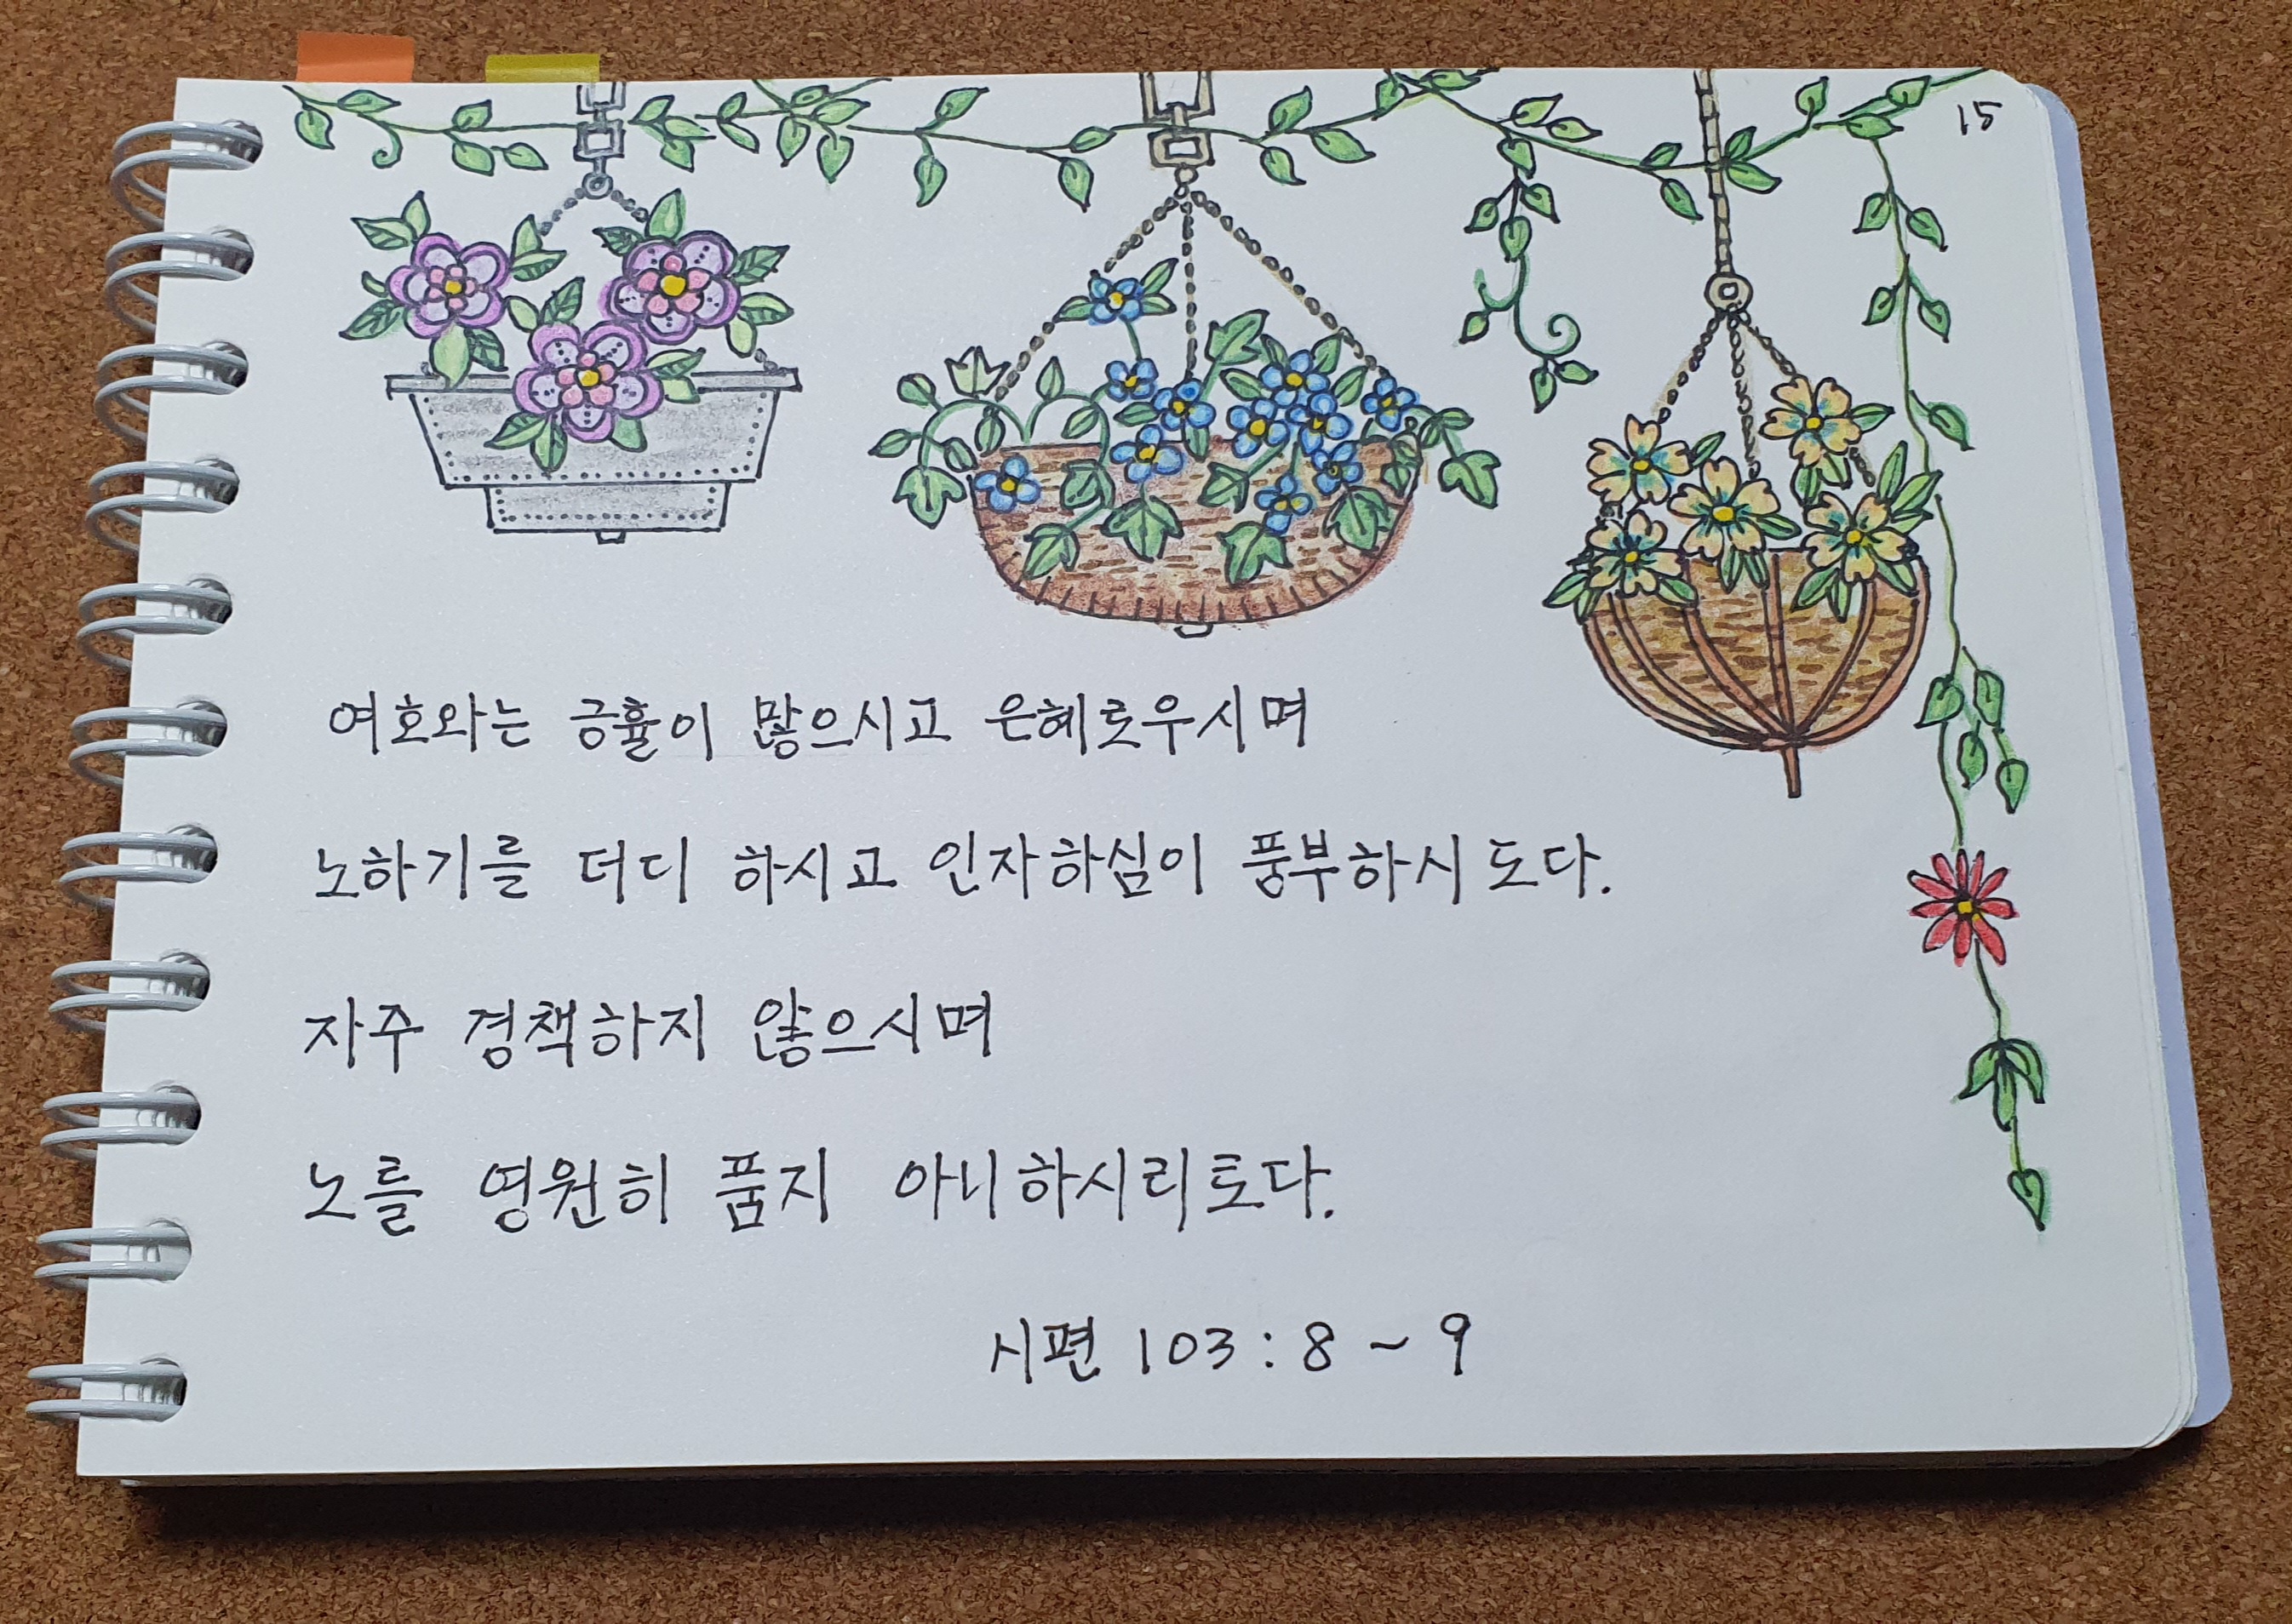 15
여호와는 긍휼이 많으시고 은혜로우시며
노하기를 더디 하시고 인자하심이 풍부하시도다.
자주 경책하지 않으시며
노를 영원히 품지 아니하시리로다.
시편 103:8~9